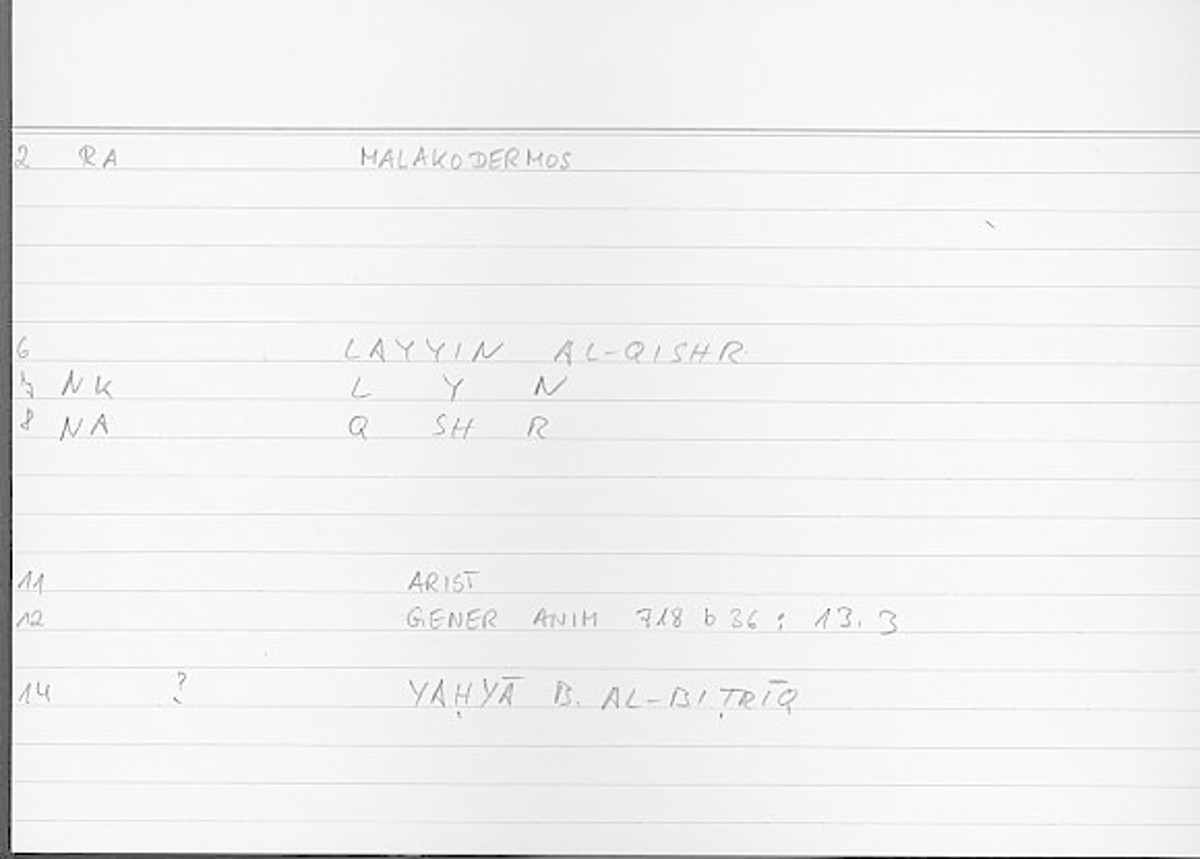 2 RA MALAKODERMOS
6 LAYYIN AL-QISHR
7 NK L Y N
8 NA Q SH R
11 ARIST
12 GENER ANIM 718 b 36 : 13.3
14 ? YAḤYĀ B. AL-BIṬRĪQ